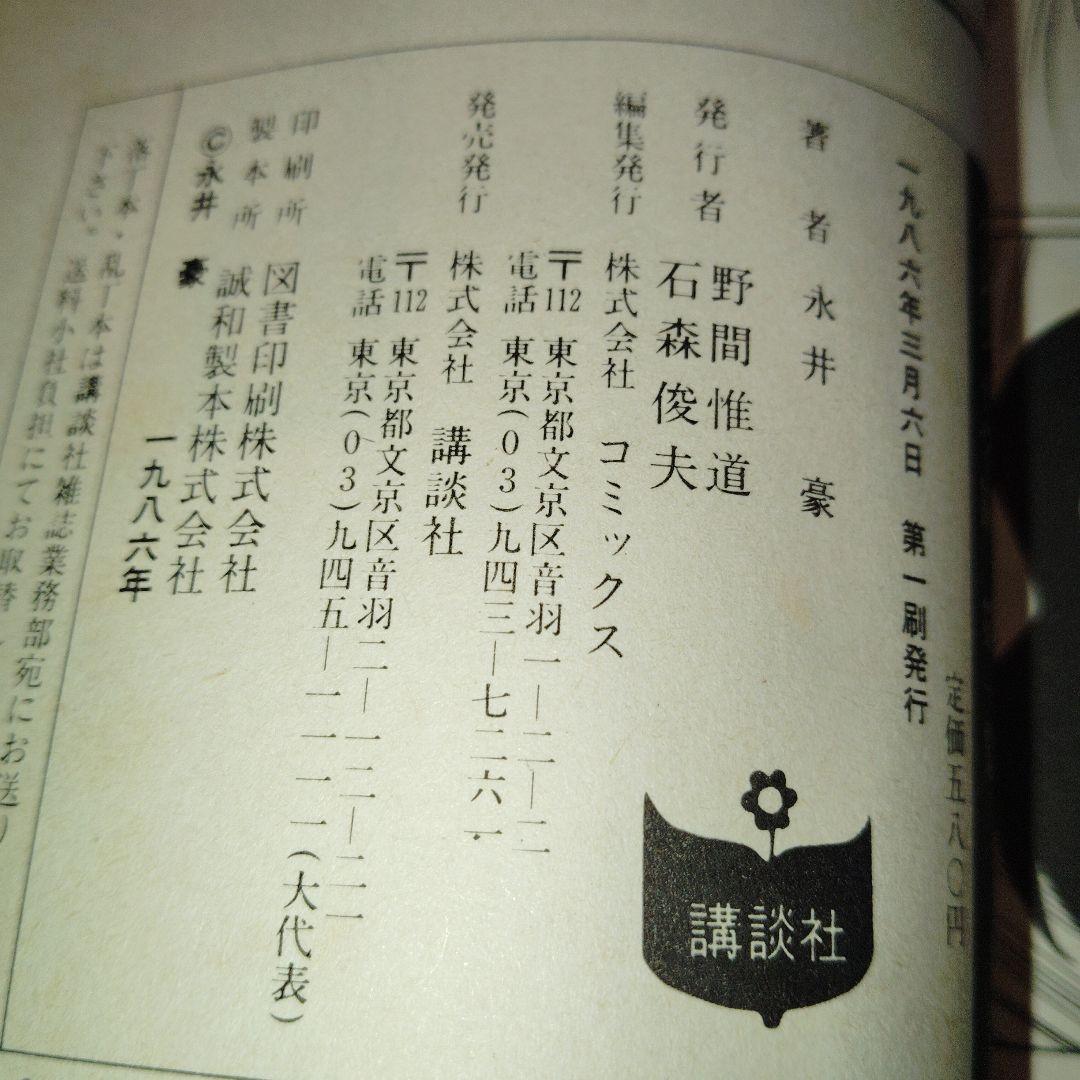 定価五八〇円
一九八六年三月六日　第一刷発行
著者　永井　豪
発行者　野間惟道
石森俊夫
編集発行　株式会社　コミックス
〒112　東京都文京区音羽一―二―二
電話　東京(０３)九四三―七二六一
発売発行　株式会社　講談社
〒112　東京都文京区音羽二―一二―二一
電話　東京(０３)九四五―一一一一(大代表)
印刷所　図書印刷株式会社
製本所　誠和製本株式会社
©永井　豪　一九八六年
落丁本、乱丁本は講談社雑誌業務部宛にお送り
下さい。送料小社負担にてお取替
講談社